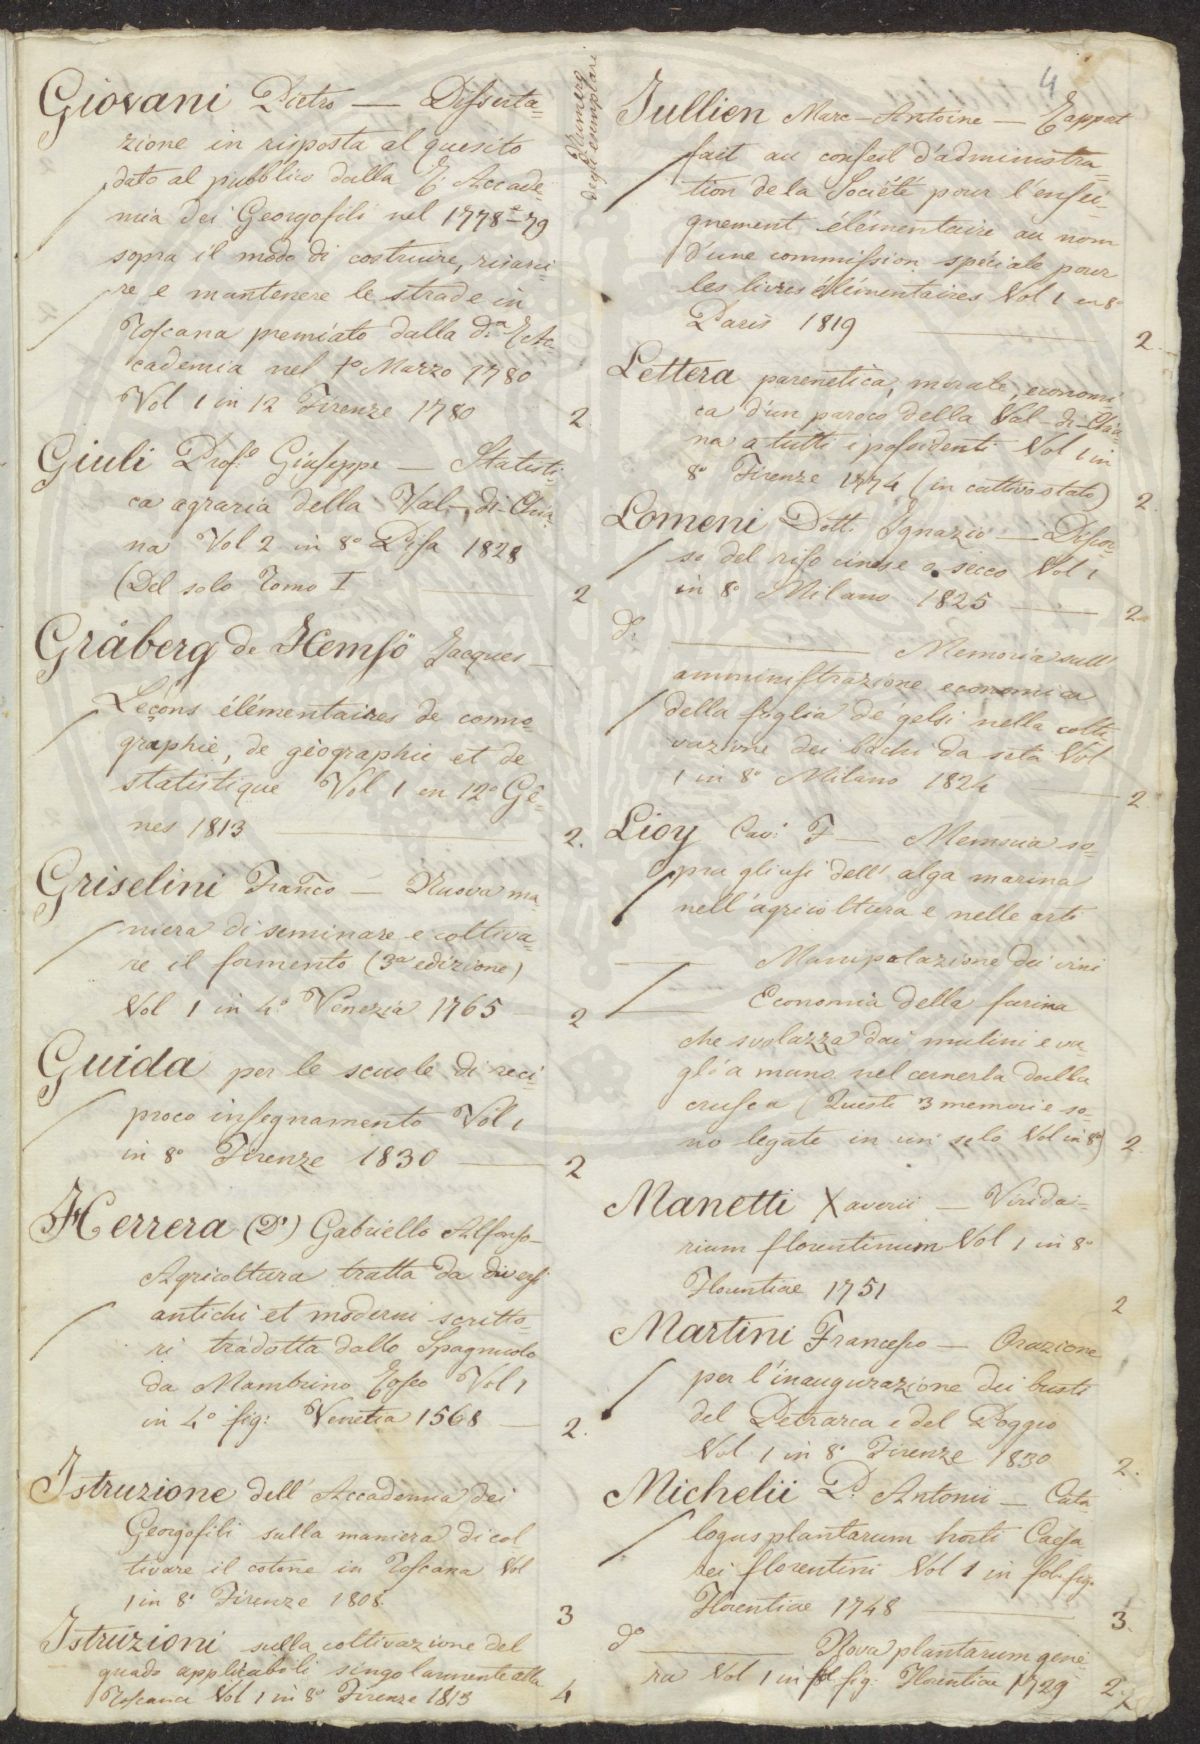 4
Numero
degli esemplari
Giovani Pietro — Disserta=
zione in risposta al quesito
dato al pubblico dalla R. Accade=
mia dei Georgofili nel 1778-79
sopra il modo di costruire, risarci=
re e mantenere le strade in
Toscana premiato dalla d.a R. Ac=
cademia nel 1º Marzo 1780
Vol 1 in 12 Firenze 1780 2.
Giuli Prof.e Giuseppe — Statisti=
ca agraria della Val-di-Chia=
na Vol 2 in 8º Pisa 1828
(Del solo Tomo I — 2
Gråberg de Hemsö Jacques —
Leçons élémentaires de cosmo=
graphie, de géographie et de
statistique Vol 1 en 12º Gê=
nes 1813 — 2.
Griselini Fran.co — Nuova ma=
niera di seminare e coltiva=
re il formento (3a edizione)
Vol 1 in 4º Venezia 1765 — 2
Guida per le scuole di reci=
proco insegnamento Vol 1
in 8º Firenze 1830 — 2
Herrera (D') Gabriello Alfonso —
Agricoltura tratta da diversi
antichi et moderni scritto=
ri tradotta dallo Spagnuolo
da Mambrino Roseo Vol 1
in 4º fig: Venetia 1568 — 2.
Istruzione dell' Accademia dei
Georgofili sulla maniera di col=
tivare il cotone in Toscana Vol
1 in 8º Firenze 1808. 3
Istruzioni sulla coltivazione del
guado applicabili singolarmente alla
Toscana Vol 1 in 8º Firenze 1813 4
Jullien Marc-Antoine — Rapport
fait au conseil d'administra=
tion de la Société pour l'ensei=
gnement élémentaire au nom
d'une commission spéciale pour
les livres élémentaires Vol 1 en 8º
Paris 1819 — 2.
Lettera parenetica, morale, economi=
ca d'un paroco della Val-di-Chia=
na a tutti i possidenti Vol 1 in
8º Firenze 1774 (in cattivo stato) 2.
Lomeni Dott. Ignazio — Discor=
so del riso cinese o secco Vol 1
in 8º Milano 1825 — 2.
dº — Memoria sull'
amministrazione economica
della foglia de' gelsi nella colti=
vazione dei bachi da seta Vol
1 in 8º Milano 1824 — 2
Lioy Cav: F — Memoria so=
pra gli usi dell' alga marina
nell' agricoltura e nelle arti
— Manipolazione dei vini
— Economia della farina
che svolazza dai mulini e va=
gli a mano nel cernerla dalla
crusca (Queste 3 memorie so=
no legate in un solo Vol in 8º) 2.
Manetti Xaverii — Virida=
rium florentinum Vol 1 in 8º
Florentiae 1751 2
Martini Francesco — Orazione
per l'inaugurazione dei busti
del Petrarca e del Poggio
Vol 1 in 8º Firenze 1830 2.
Michelii P. Antonii — Cata=
logus plantarum horti Caesa=
rei florentini Vol 1 in fol. fig.
Florentiae 1748 — 3.
dº — Nova plantarum gene=
ra Vol 1 in fol fig. Florentiae 1729 2.